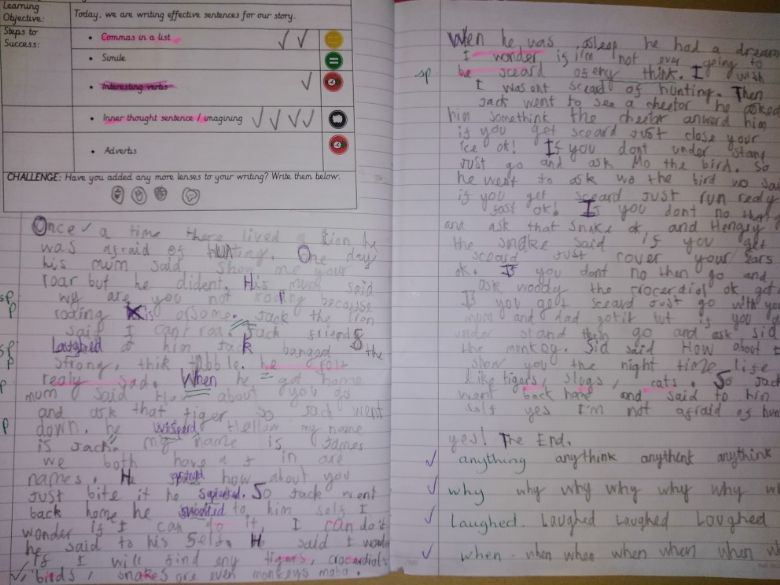 Learning
Objective:
Today, we are writing effective sentences for our story.
Steps to
Success:
Commas in a list
Simile
Interesting verbs
Inner thought sentence / imagining
Adverbs
CHALLENGE: Have you added any more lenses to your writing? Write them below.
Once a time there lived a lion he
was afraid of Hunting. One day
his mum said show me your
roar but he dident. His mum said
sp why are you not roring because
p roring is
said I can't roar Jack friends
sp Laughed at him Jack banged the
p strong, thik table. he felt
realy sad. When he got home
mum said about you go
and ask that tiger so Jack went
p down. he Hellow my name
is Jack. my name is James
we both have a J in are
names. He how about you
Just bite it he So Jack went
back home he to him self I
wonder if I can do it. I can do it
he said to his self. He said I
if I will find eny tigers, crocodials
birds, snakes are even monkeys
When he was asleep he had a dream
I wonder if I'm not ever going to
sp be sceard of eny think. I
I was ent sceard of hunting. Then
Jack went to see a cheetor he asked
him somethink the cheetor anwerd him
if you get sceard Just close your
ice ok! If you dont under stand
Just go and ask Mo the bird. So
he went to ask mo the bird mo said
if you get sceard Just run realy
fast ok! If you dont no then
and ask that snake ok and Hengry
the snake said if you get
sceard Just cover your ears
ok. If you dont no then go and
ask woody the crocerdiel ok
If you get sceard Just go with your
mum and dad gotit but if you
under stand then go and ask sid
the monkey. Sid said How about I
show you the night time life
like tigers, slugs, rats. So Jack
went back home and said to him
self yes I'm not afraid of
yes! The End.
anything anythink anythent anythink
why why why why why why
Laughed. Laughed Laughed Loughed
when. when when when when when